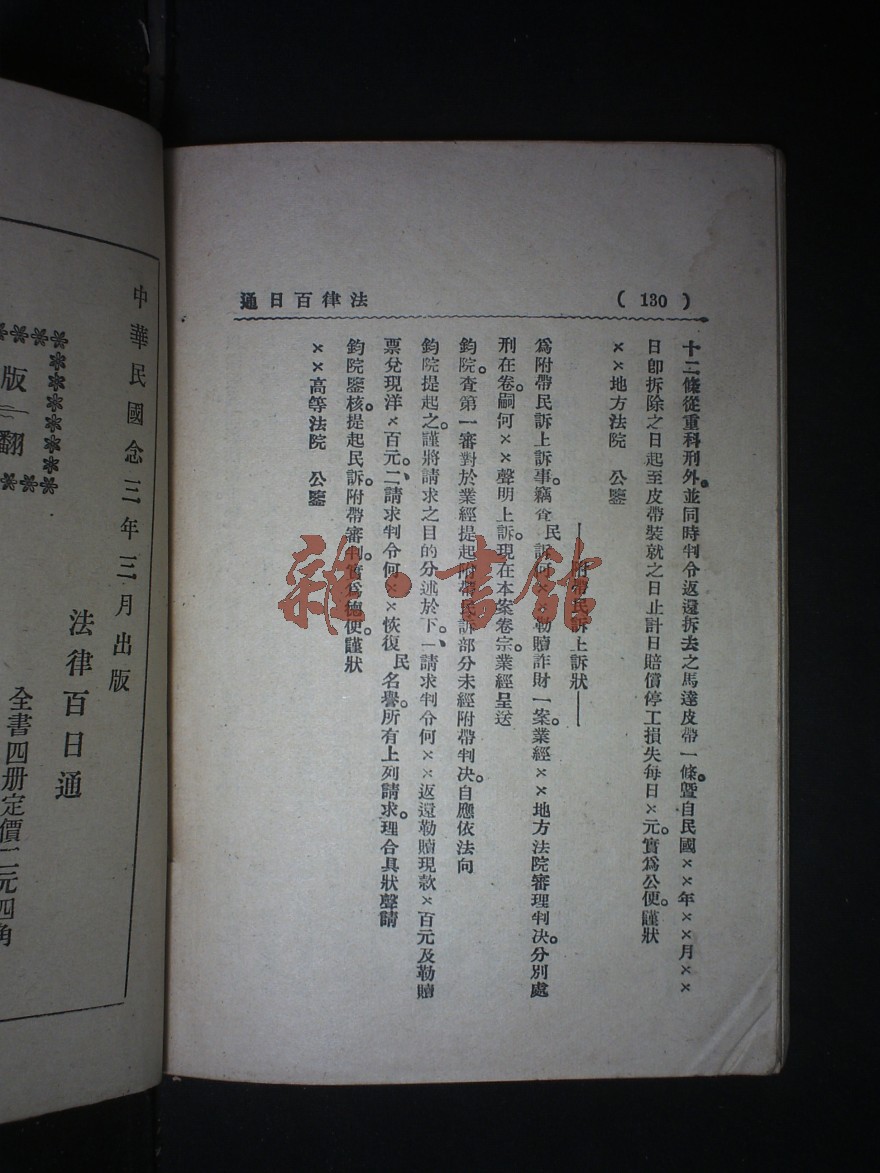 法律百日通
( 130 )
十二條從重科刑外。並同時判令返還拆去之馬達皮帶一條。暨自民國××年××月××
日卽拆除之日起至皮帶裝就之日止計日賠償停工損失每日×元。實爲公便。謹狀
××地方法院 公鑒
——附帶民訴上訴狀——
爲附帶民訴上訴事。竊 民訴何××勒贖詐財一案。業經××地方法院審理判决。分別處
刑在卷。嗣何××聲明上訴。現在本案卷宗。業經呈送
鈞院。查第一審對於業經提起附帶民訴部分未經附帶判决。自應依法向
鈞院提起之。謹將請求之目的分述於下。一請求判令何××返還勒贖現欵×百元及勒贖
票兌現洋×百元。二、請求判令何××恢復民名譽。所有上列請求。理合具狀聲請
鈞院鑒核。提起民訴。附帶審判。實爲德便。謹狀
××高等法院 公鑒
中華民國念三年三月出版
法律百日通
全書四册定價二元四角
版
翻
雜·書館